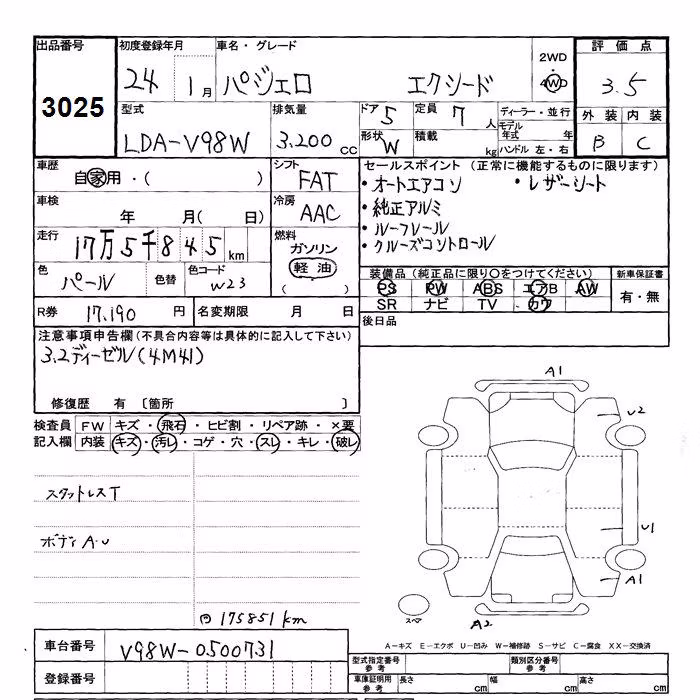 出品番号 初度登録年月 車名・グレード 2WD 評価点
3025 24 1月 パジェロ エクシード 4WD 3.5
型式 排気量 ドア 5 定員 7人 ディーラー・並行 外装 内装
LDA-V98W 3,200cc 形状 W 積載 kg モデル年式 年 B C
ハンドル 左・右
車歴 シフト セールスポイント (正常に機能するものに限ります)
自家用・( ) FAT ・オートエアコン ・レザーシート
車検 冷房 ・純正アルミ
年 月( 日) AAC ・ルーフレール
走行 燃料 ・クルーズコントロール
17万5千845km ガソリン
色 色替 色コード 軽油 装備品(純正品に限り○をつけてください) 新車保証書
パール W23 ( ) PS PW ABS エアB AW 有・無
SR ナビ TV カワ
R券 17,190円 名変期限 月 日 後日品
注意事項申告欄(不具合内容等は具体的に記入して下さい)
3.2ディーゼル(4M41)
修復歴 有 〔箇所 〕
検査員 FW キズ・飛石・ヒビ割・リペア跡・×要
記入欄 内装 キズ・汚レ・コゲ・穴・スレ・キレ・破レ
スタットレスT
ボディA・U
175851km
A1
U2
U1
A1
A2
スペア
A-キズ E-エクボ U-凹み W-補修跡 S-サビ C-腐食 XX-交換済
車台番号 V98W-0500731
登録番号
型式指定番号 参考 類別区分番号 参考
車庫証明用 参考 長さ cm 幅 cm 高さ cm